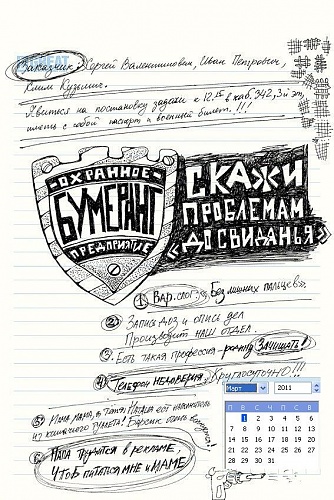 Заказчик: Сергей Валентинович, Иван Петрович,
Клим Кузьмич.
Явиться на постановку задачи к 12.15 в каб. 342, 3й эт,
иметь с собой паспорт и военный билет.!!!
ОХРАННОЕ
БУМЕРАНГ
ПРЕДПРИЯТИЕ
СКАЖИ
ПРОБЛЕМАМ
«ДО СВИДАНЬЯ»
1) Вар. слог: «Без лишних пальцев».
2) Запись доз и опись дел
Производит наш отдел.
3. Есть такая профессия - родину Защищать!
4) Телефон недоверия, Круглосуточно!!!
5) мама, а тётя Наташа ест наполнитель
из кошачьего туалета! Барсик опять
6) Папа трудится в рекламе,
Чтоб питаться мне и маме.
Март 2011
П В С Ч П С В
1 2 3 4 5 6
7 8 9 10 11 12 13
14 15 16 17 18 19 20
21 22 23 24 25 26 27
28 29 30 31